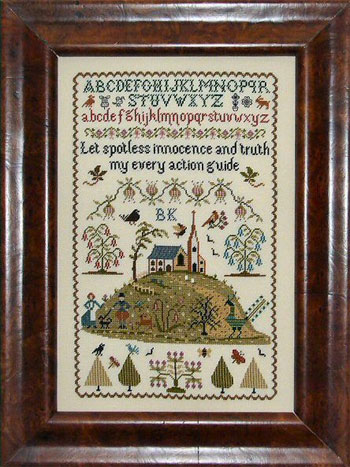 ABCDEFGHIJKLMNOPQR
STUVWXYZ
abcdefghijklmnopqrstuvwxyz
Let spotless innocence and truth
my every action guide
BK